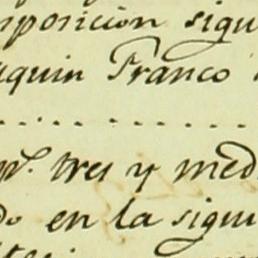 mposicion sigu
aquin Franco
pl. tres y med
do en la sigui